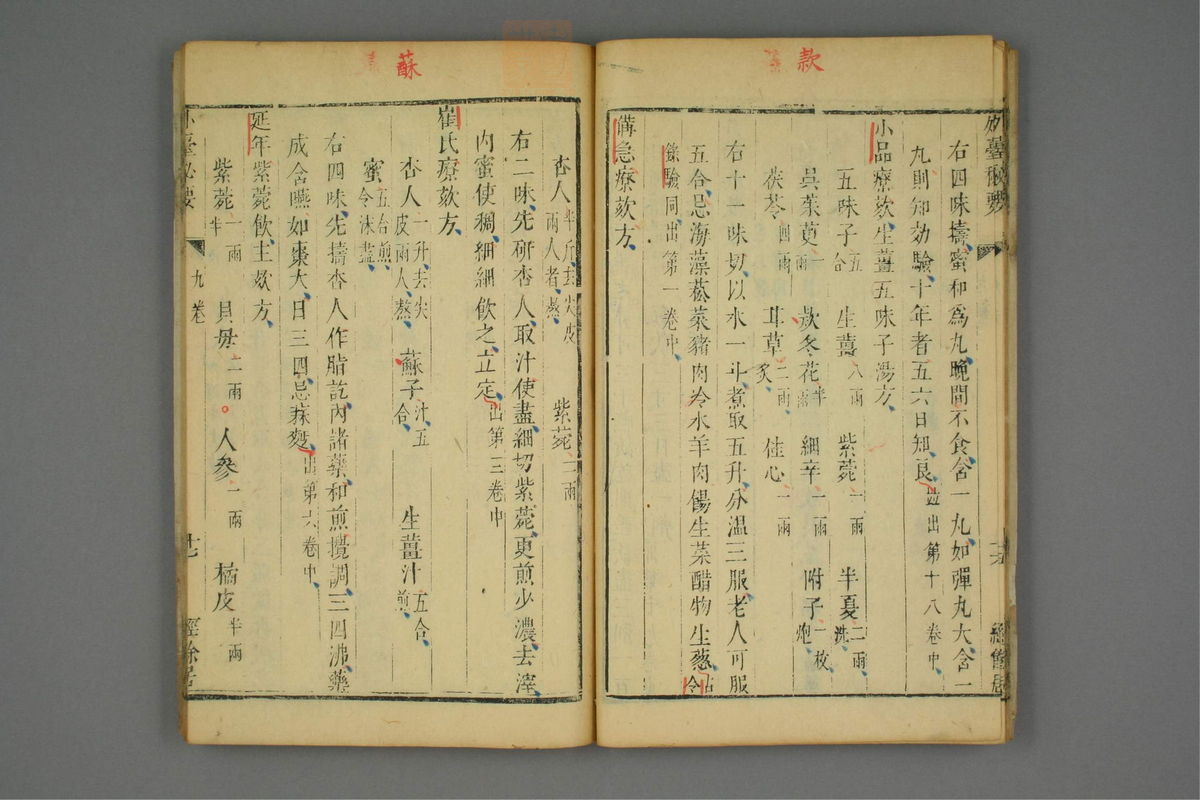 款
右四味擣蜜和爲丸晚間不食含一丸如彈丸大含一
丸則知効驗十年者五六日知良並出第十八卷中
小品療欬生薑五味子湯方
五味子五合 生薑八兩 紫菀一兩 半夏二兩洗
吳茱萸一兩 款冬花半兩 細辛一兩 附子一枚炮
茯苓四兩 甘草二兩炙 桂心一兩
右十一味切以水一斗煮取五升分溫三服老人可服
五合忌海藻菘菜豬肉冷水羊肉餳生菜醋物生蔥古今
錄驗同出第一卷中
備急療欬方
蘇
杏人半斤去尖皮兩人者熬 紫菀二兩
右二味先研杏人取汁使盡細切紫菀更煎少濃去滓
內蜜使稠細細飲之立定出第三卷中
崔氏療欬方
杏人一升去尖皮兩人熬 蘇子汁五合 生薑汁五合煎
蜜五合煎令沫盡
右四味先擣杏人作脂訖內諸藥和煎攪調三四沸藥
成含嚥如棗大日三四忌蕪荑出第六卷中
延年紫菀飲主欬方
紫菀一兩半 貝母二兩 人參一兩 橘皮半兩
外臺祕要 九卷 廿七 經餘居